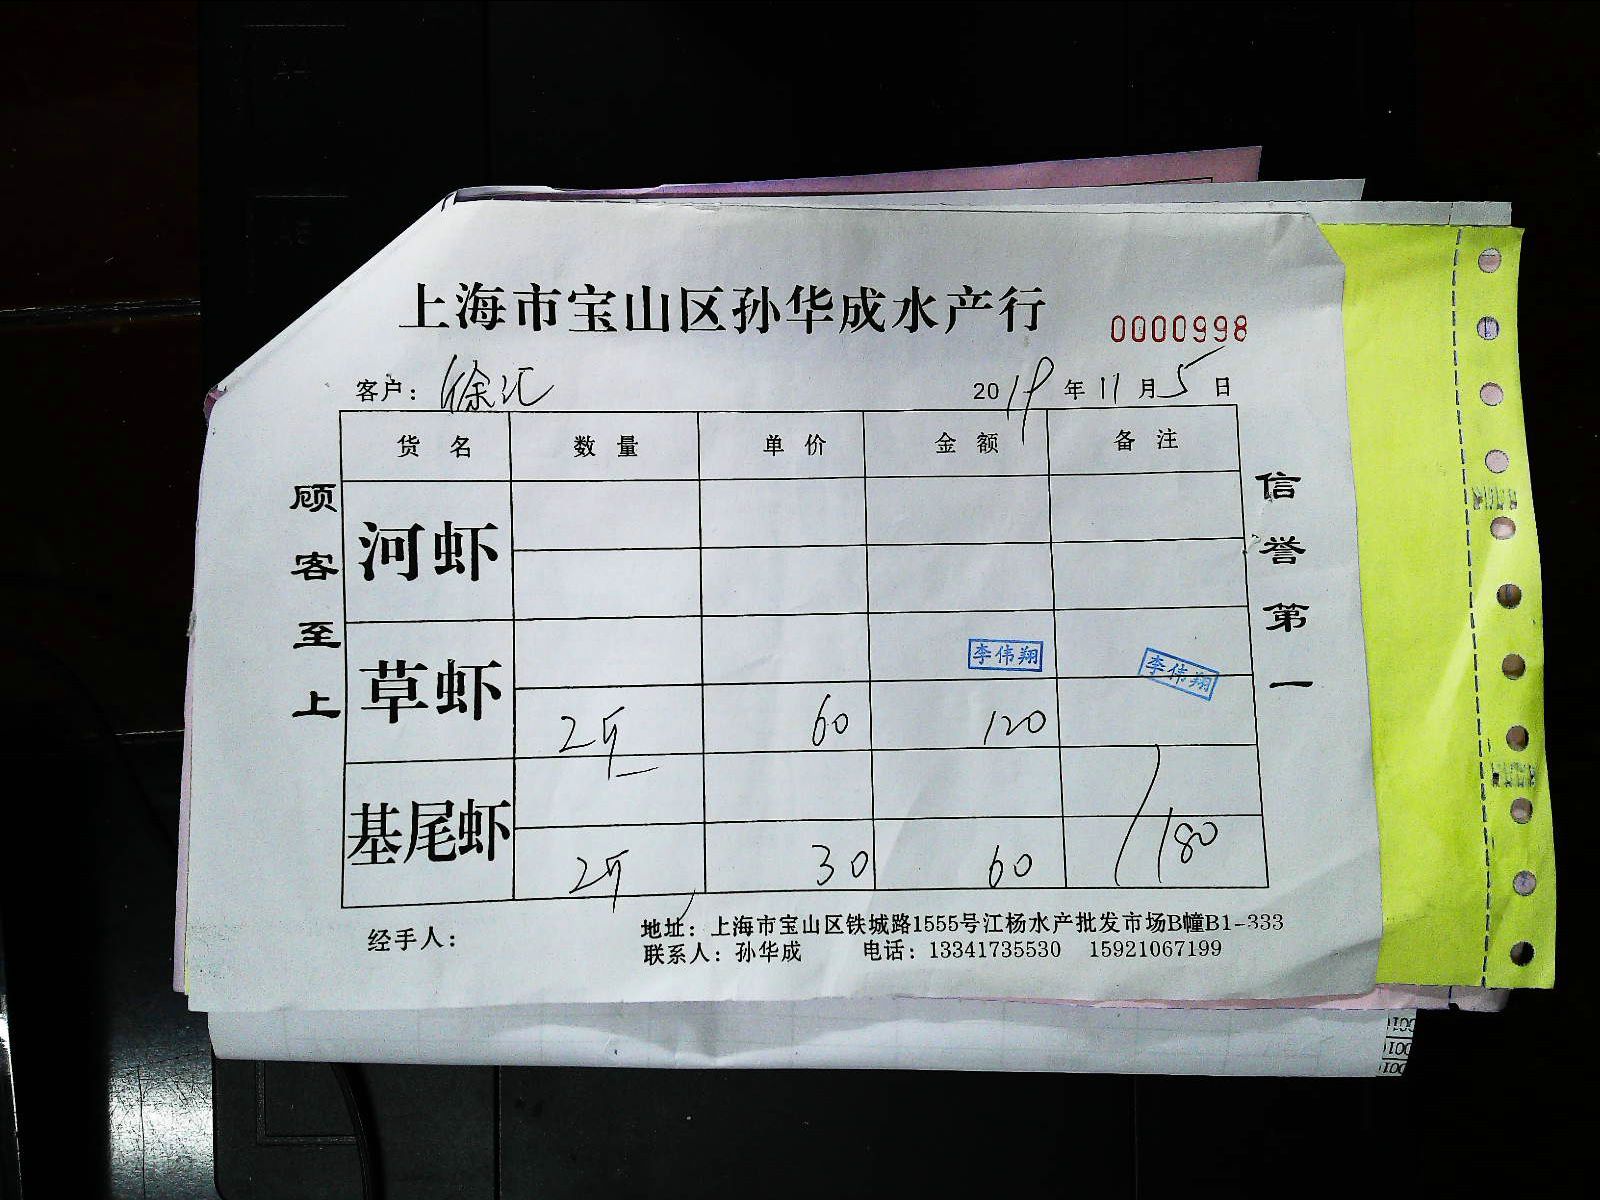 上海市宝山区孙华成水产行
0000998
客户：徐汇 2019年11月5日
货名 数量 单价 金额 备注
河虾
草虾
李伟翔 李伟翔
2斤 60 120
基尾虾
2斤 30 60 /180
顾客至上
信誉第一
经手人：
地址：上海市宝山区铁城路1555号江杨水产批发市场B幢B1-333
联系人：孙华成 电话：13341735530 15921067199